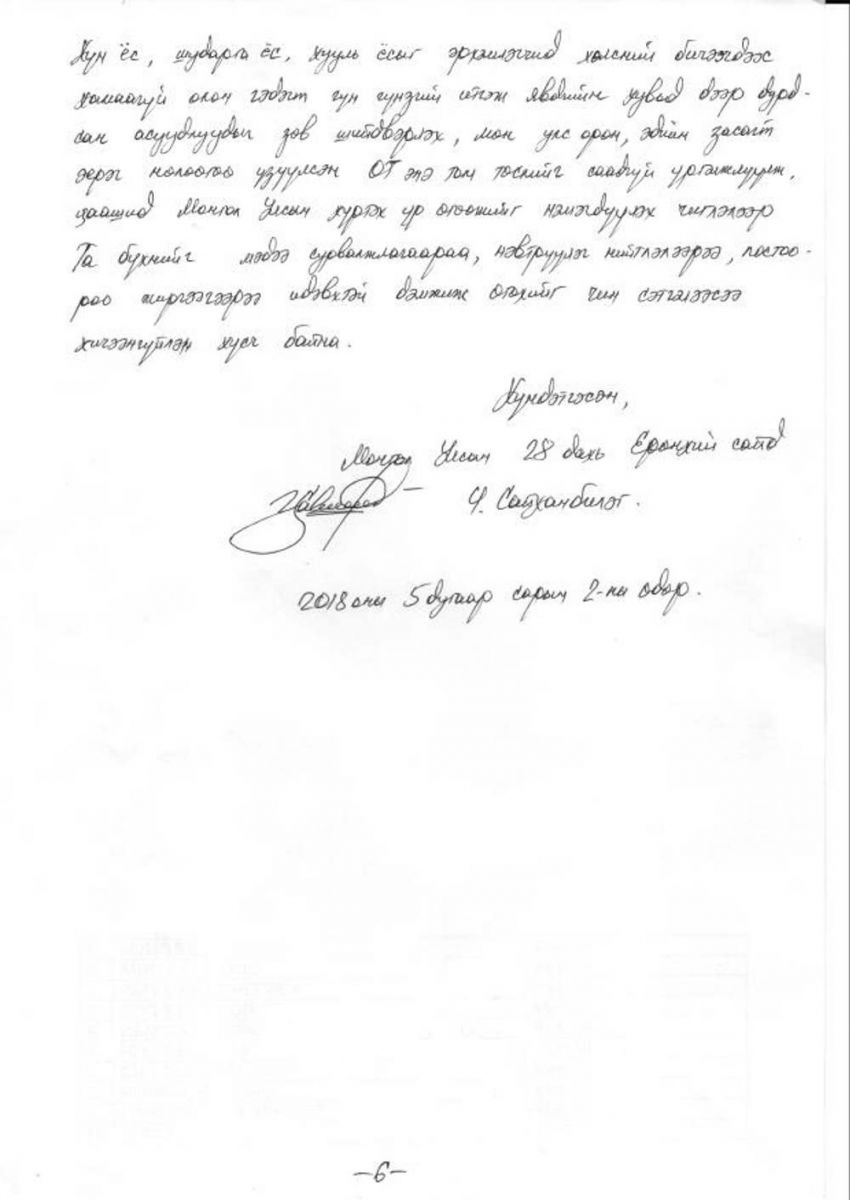 Хүн ёс, шударга ёс, хууль ёсыг эрхэмлэгчид хөлсний бичээчдээс
хамаагүй олон гэдэгт гүн гүнзгий итгэж явдгийн хувьд дээр дурд-
сан асуудлуудыг зөв шийдвэрлэх, мөн улс орон, эдийн засагт
эерэг нөлөөгөө үзүүлсэн ОТ энэ том төслийг саадгүй үргэлжлүүлж,
цаашид Монгол Улсын хүртэх үр өгөөжийг нэмэгдүүлэх чиглэлээр
Та бүхнийг мэдээ сурвалжлагаараа, нэвтрүүлэг нийтлэлээрээ, постоо-
роо жиргээгээрээ идэвхтэй дэмжиж өгөхийг чин сэтгэлээсээ
хичээнгүйлэн хүсч байна.
Хүндэтгэсэн,
Монгол Улсын 28 дахь Ерөнхий сайд
Ч. Сайханбилэг.
2018 оны 5 дугаар сарын 2-ны өдөр.
-6-